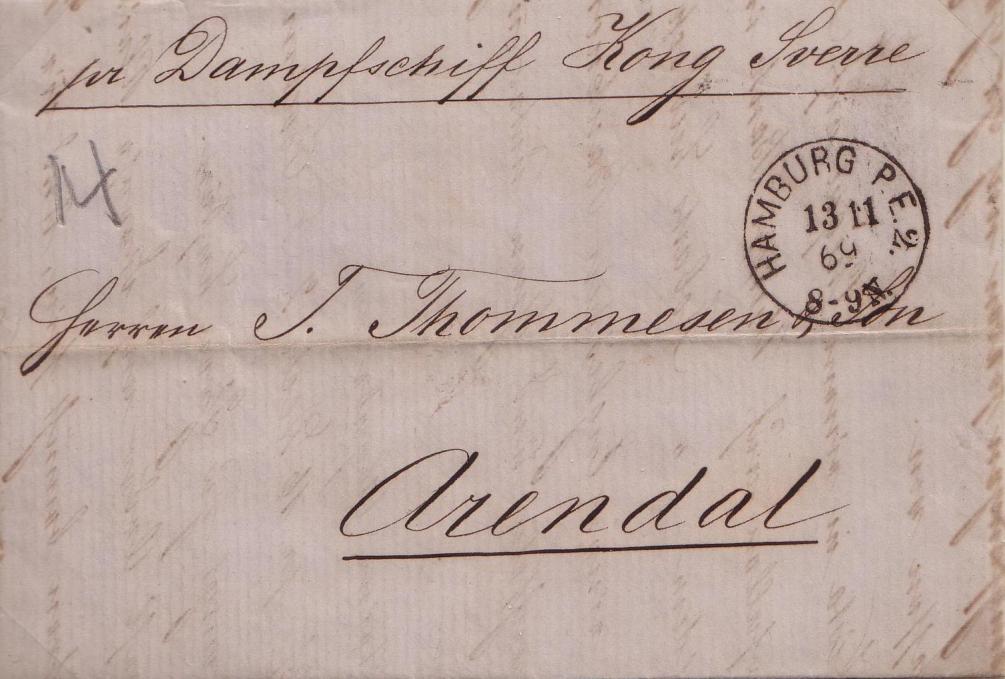 pr Dampfschiff Kong Sverre
14
HAMBURG P.E.2.
13 11
69
8-9N.
Herren J. Thommesen & Son
Arendal